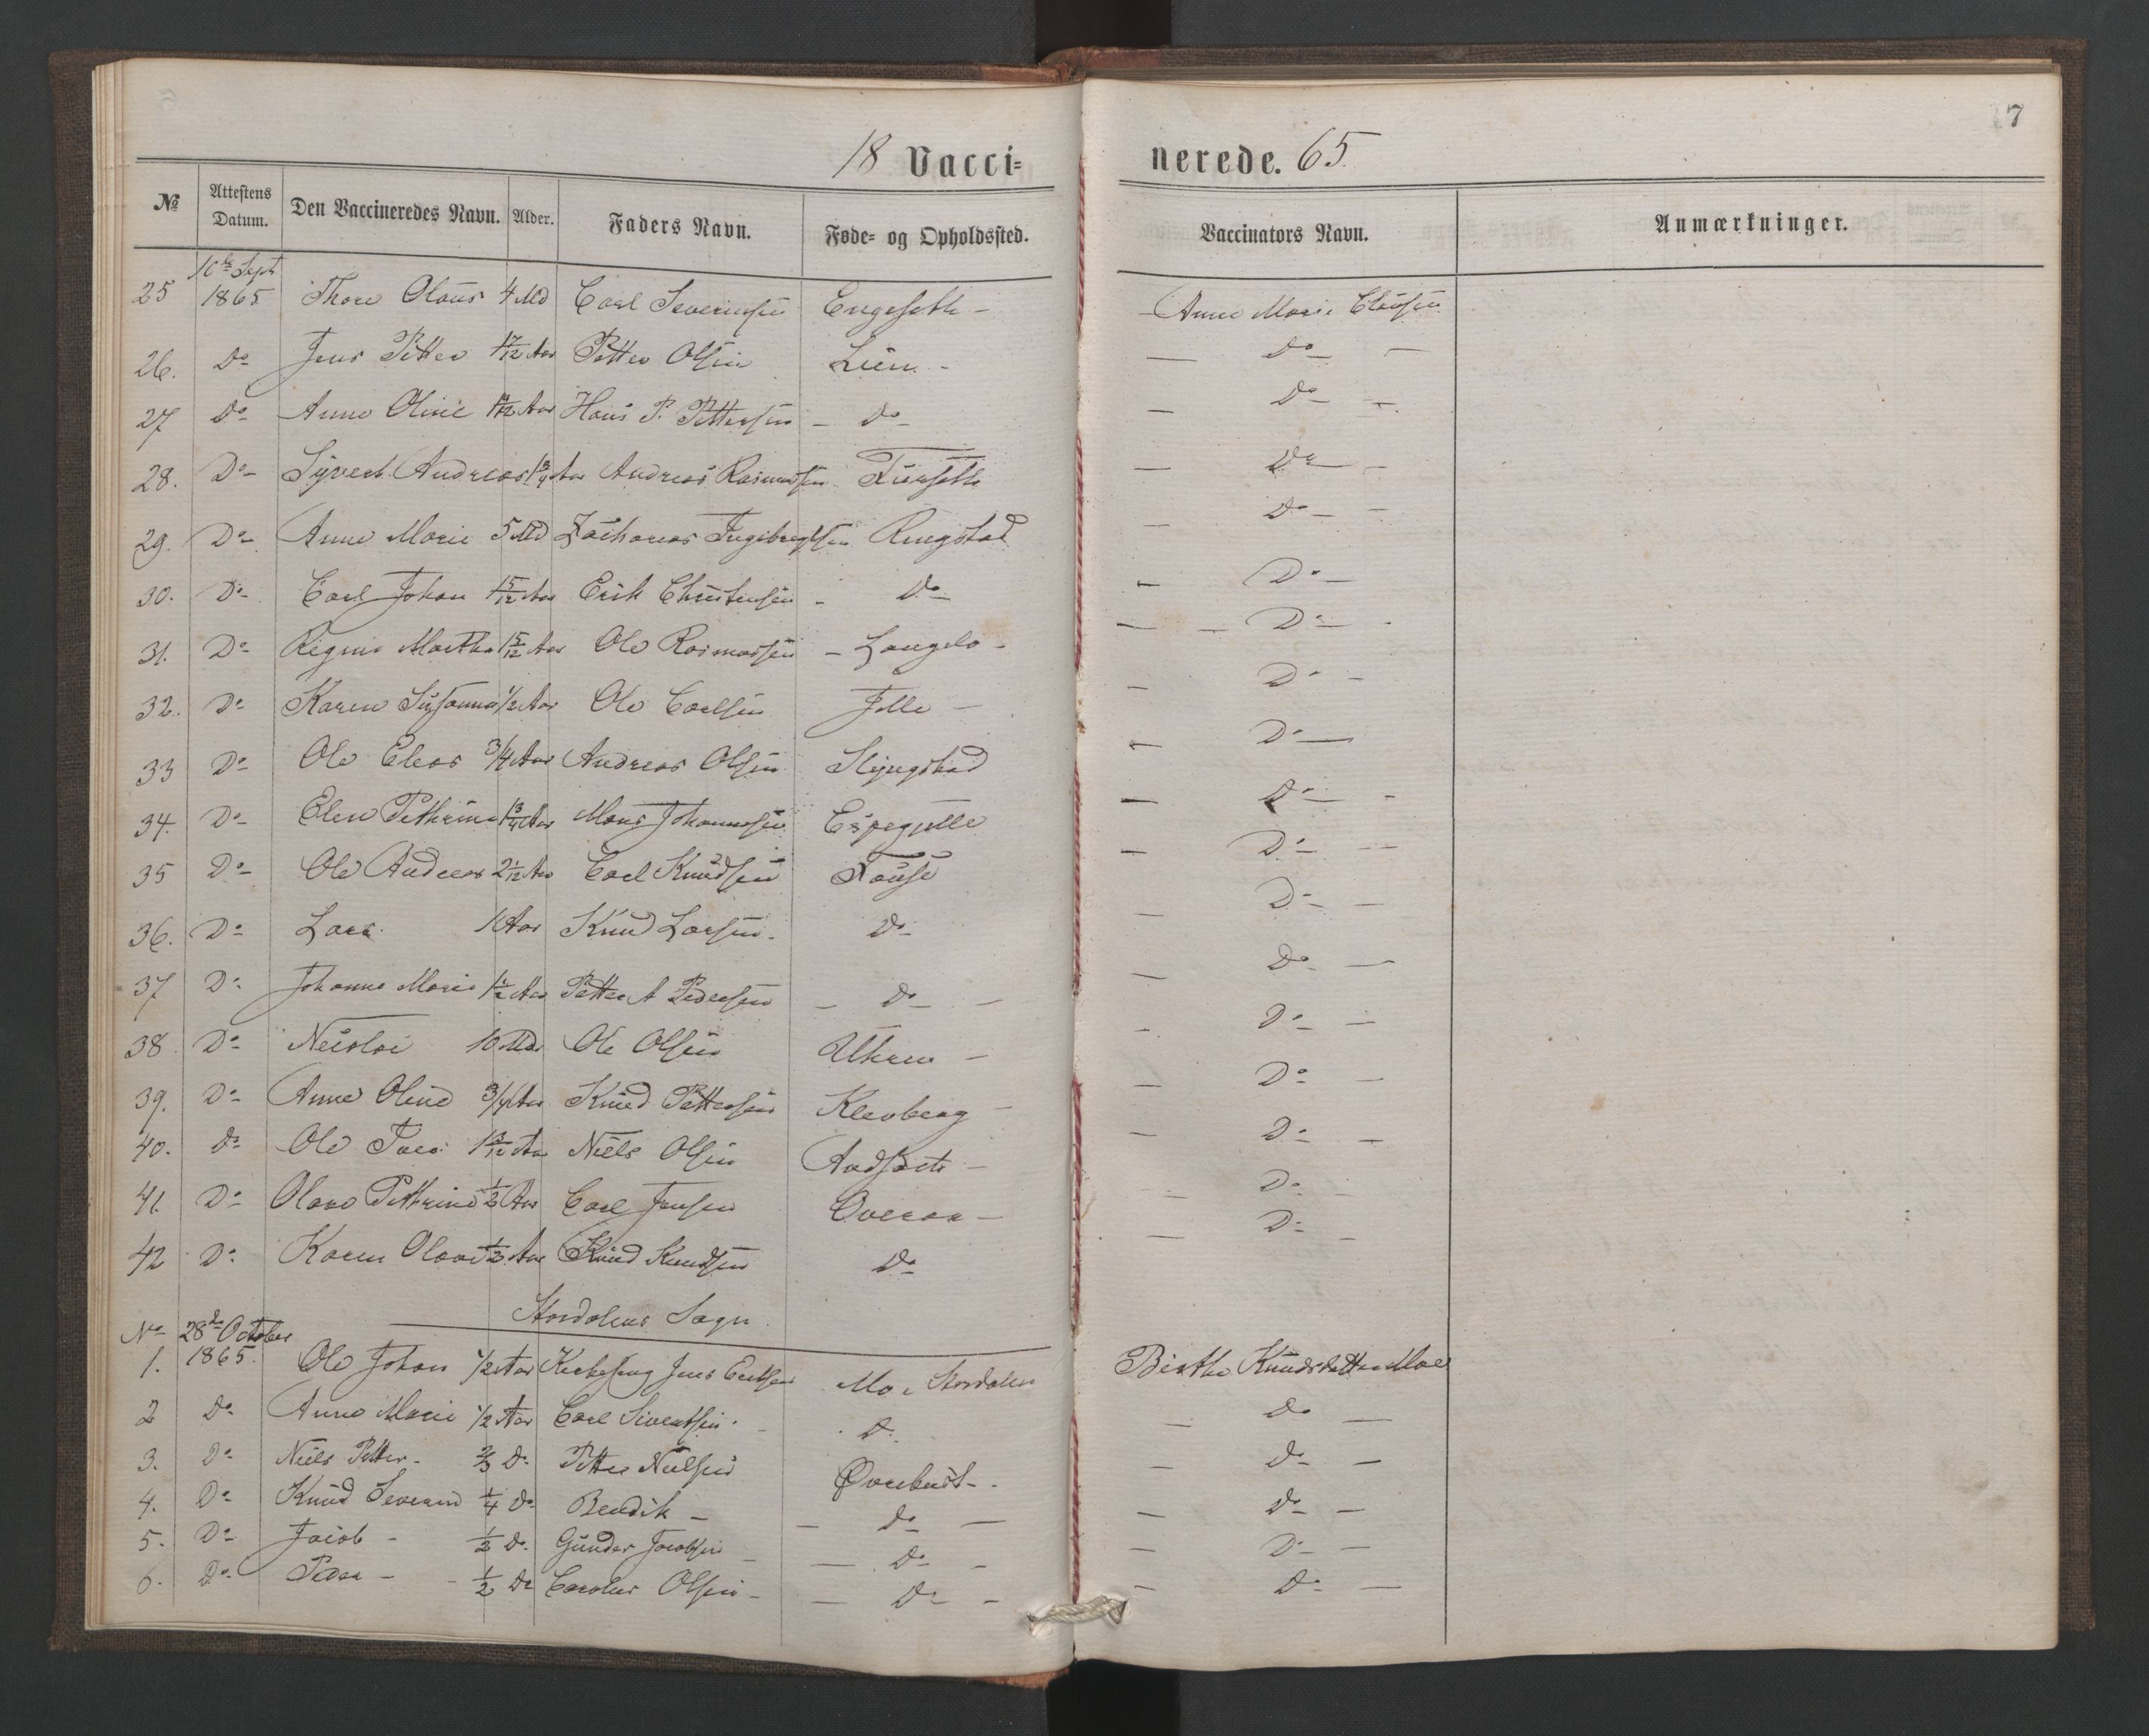 7
18 Vacci- nerede. 65.
№ Attestens Datum. Den Vaccineredes Navn. Alder. Faders Navn. Føde- og Opholdssted. Vaccinators Navn. Anmærkninger.
10de Sept
25 1865 Thore Olaus 4 Md Carl Severinsen Engeseth - Anne Marie Clausen
26. Do Jens Petter 1 7/12 Aar Petter Olsen Lien - Do
27 Do Anne Oline Aar Hans P. Pettersen - Do - Do
28. Do Syvert Andreas 1 3/4 Aar Andreas Rasmussen Do
29. Do Anne Marie 5 Md Zacharias Ingebregtsen Ringstad Do
30. Do Carl Johan 1 5/12 Aar Erik Christensen - Do Do
31. Do Regine Martha 1 5/12 Aar Ole Rasmussen - Langelo - Do
32. Do Karen Susanna 1/2 Aar Ole Carlsen Do
33 Do Ole Elias 3/4 Aar Andreas Olsen Slyngstad Do
34. Do Elen Pethrine 1 3/4 Aar Mons Johannesen Espegjelle Do
35 Do Ole Andreas 2 1/12 Aar Carl Knudsen Fause Do
36. Do Lars 10 Aar Knud Larsen Do Do
37 Do Johanne Marie 1 1/2 Aar Petter A Pedersen - Do - Do
38 Do Nicolai 10 Mdr Ole Olsen Do
39. Do Anne Oline 3/4 Aar Knud Pettersen Klevberg Do
40. Do Ole Aar Niels Olsen Do
41. Do Olave Pethrine 1/2 Aar Carl Jensen Overaa - Do
42 Do Karen 1/2 Aar Knud Knudsen Do Do
Stordalens Sogn.
No 28de October
1. 1865. Ole Johan 1/2 Aar Kirkesang Jens Mo i Stordalen Birthe Knudsdatter Moe
2 Do Anne Marie 1/2 Aar Carl Sivertsen Do Do
3. Do Niels Petter - 2/3 Do Petter Nielsen Do
4. Do Knud Severin 1/4 Do Bendik - - Do - Do
5. Do Jacob - 1/2 Do Gunder Jacobsen - Do - Do
6. Do Peder - 1/2 Do Carolus Olsen - - Do - Do